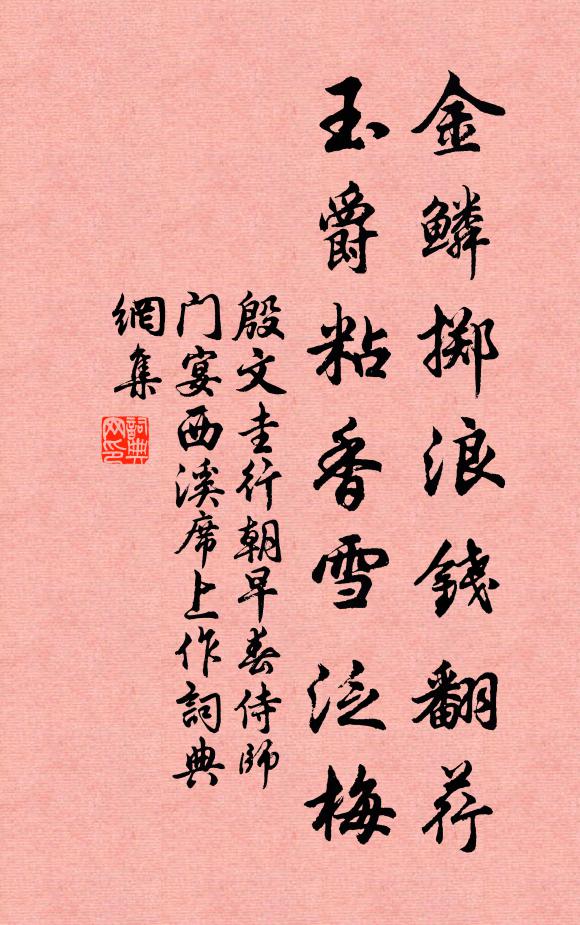 金鱗掷浪錢翻荇
玉爵粘香雪泛梅
殷文圭行朝早春侍師
门宴西溪席上作詞典
網集
詞典
网印